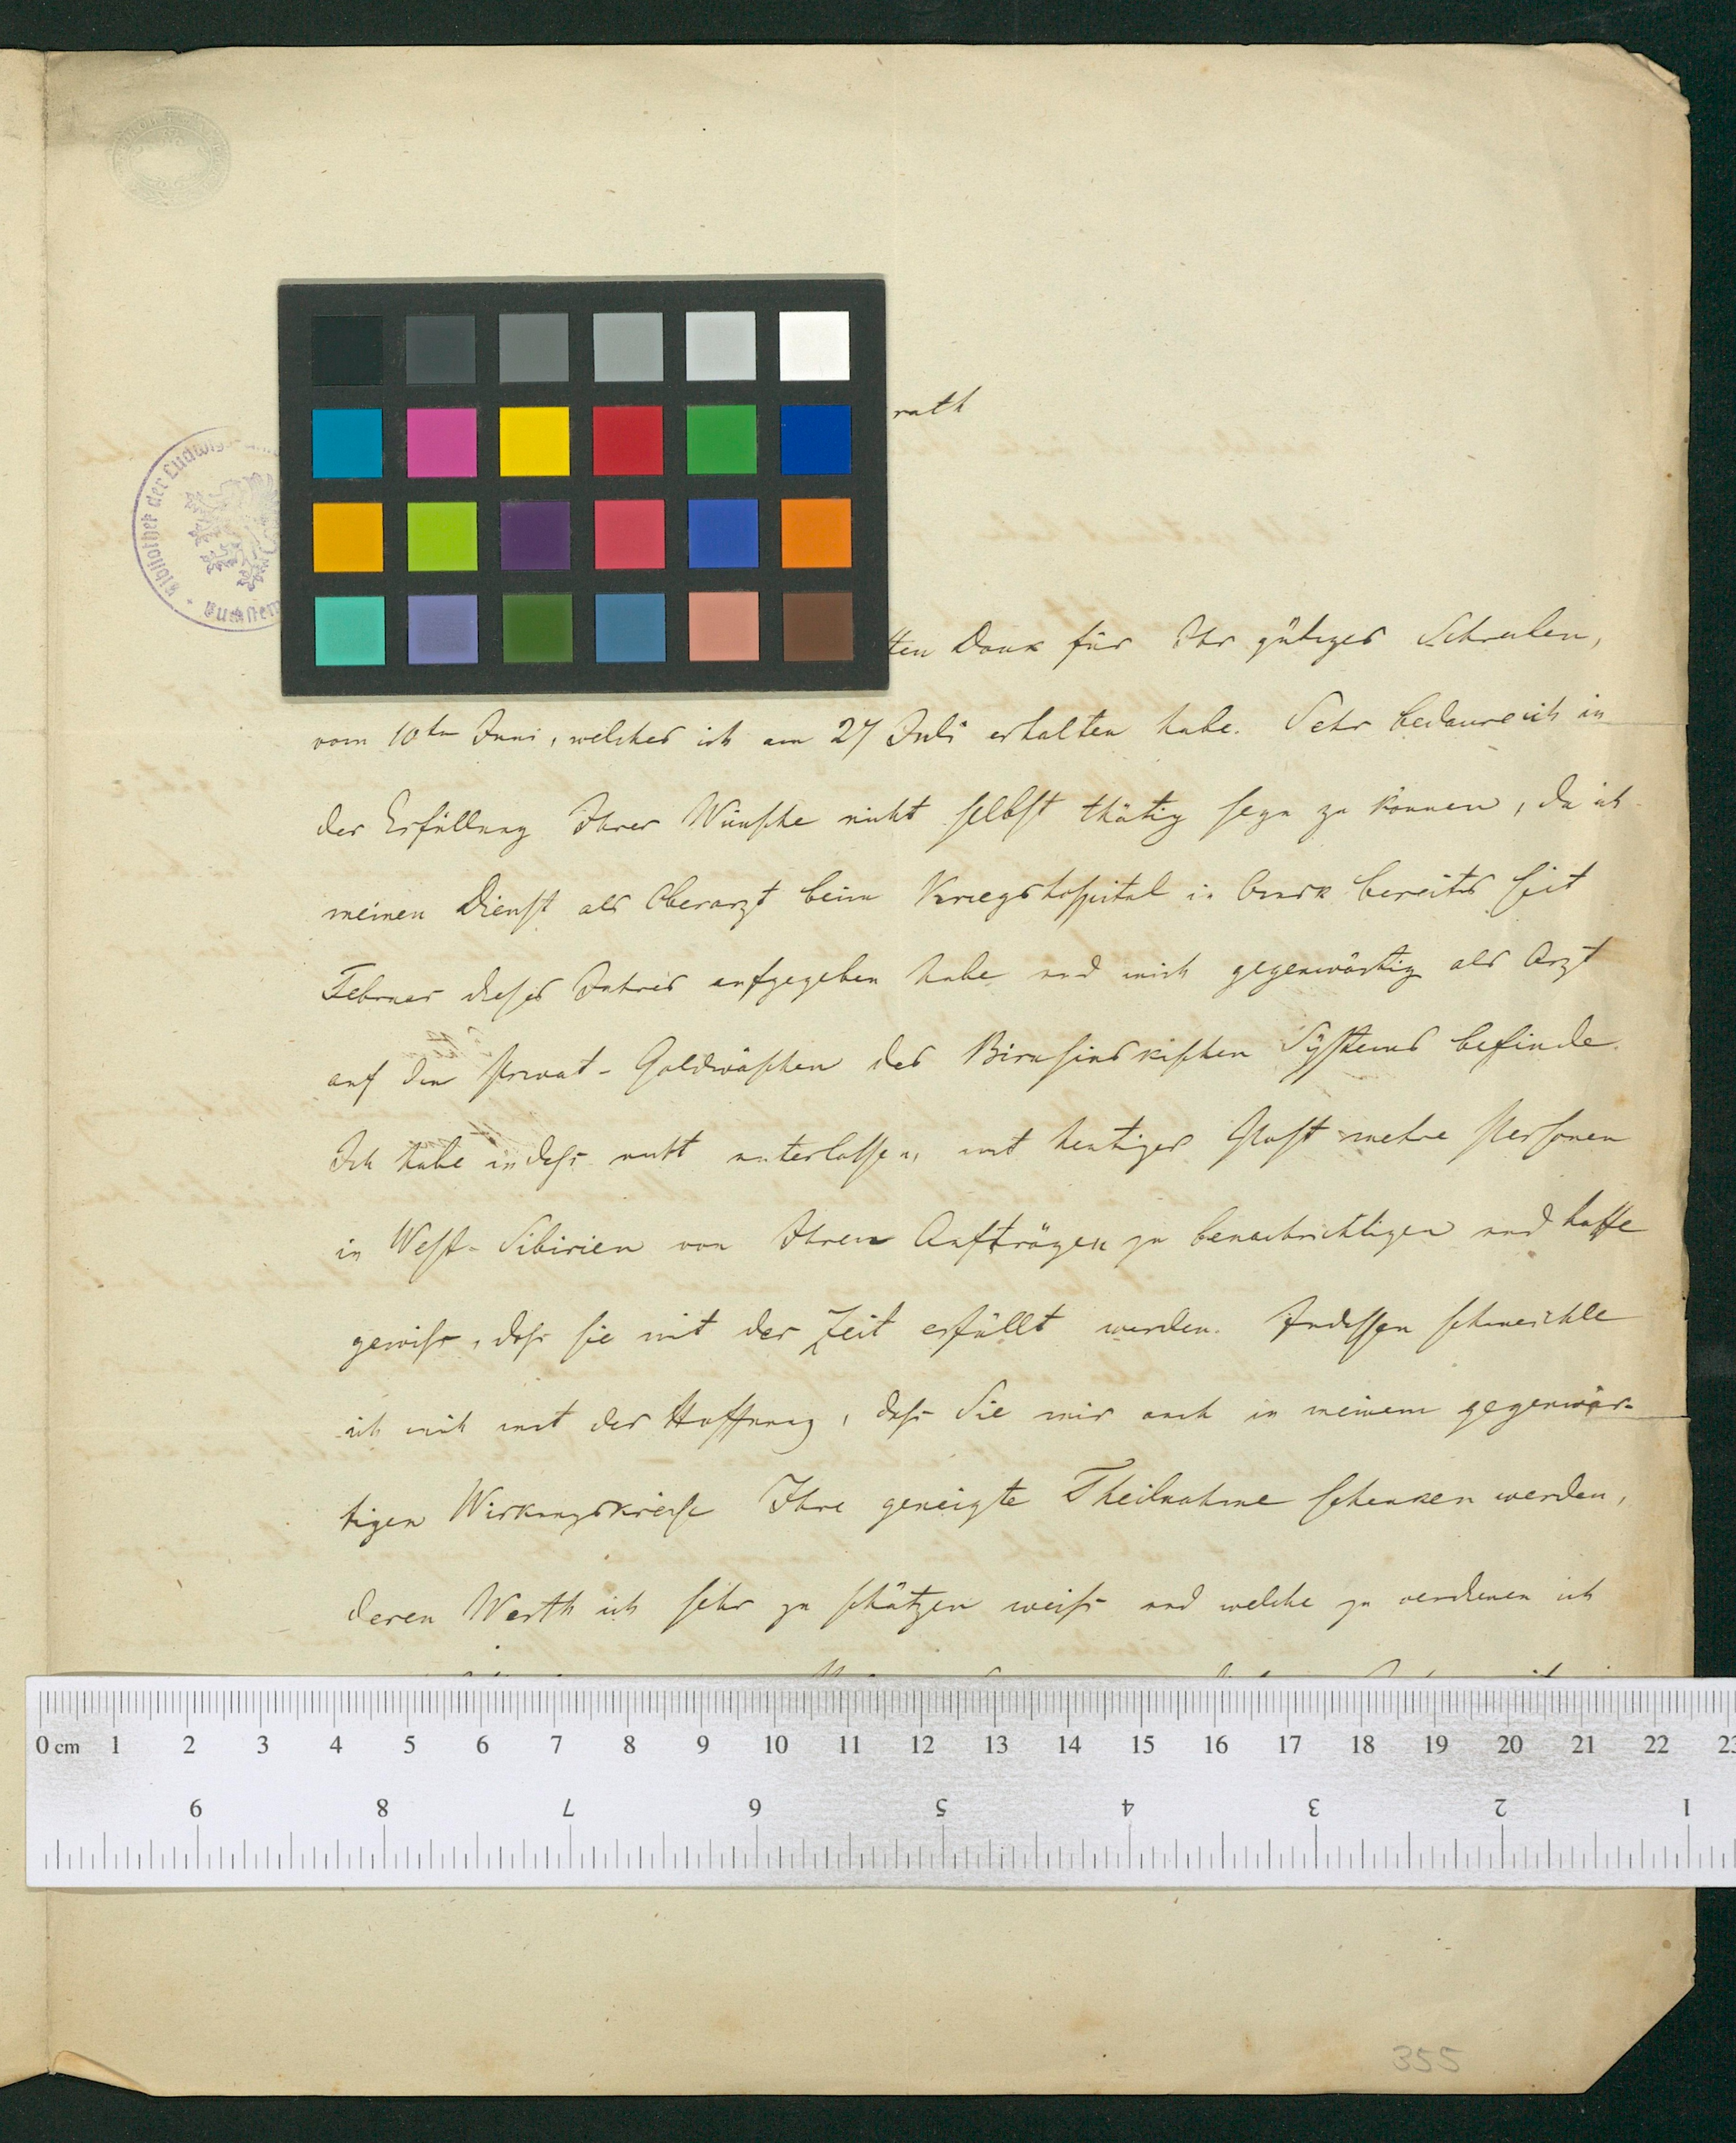 rath
Bibliothek der Ludwig
ten Dank für Ihr gütiges Schreiben,
vom 10ten Juni, welches ich am 27 Juli erhalten habe. Sehr bedaure ich in
der Erfüllung Ihrer Wünsche nicht selbst thätig seyn zu können, da ich
meinen Dienst als Oberarzt beim Kriegshospital in Omsk bereits seit
Februar dieses Jahres aufgegeben habe und mich gegenwärtig als Arzt
auf den Privat-Goldwäschen des Birusinskischen Systems befinde.
Ich habe indess nicht unterlassen, mit heutiger Post mehre Personen
in West-Sibirien von Ihren Aufträgen zu benachrichtigen und hoffe
gewiss, dass sie mit der Zeit erfüllt werden. Indessen schmeichle
ich mich mit der Hoffnung, dass Sie mir auch in meinem gegenwär-
tigen Wirkungskreise Ihre geneigte Theilnahme schenken werden,
deren Werth ich sehr zu schätzen weiss und welche zu verdienen ich
0 cm 1 2 3 4 5 6 7 8 9 10 11 12 13 14 15 16 17 18 19 20 21 22 23
9 8 7 6 5 4 3 2 1
355